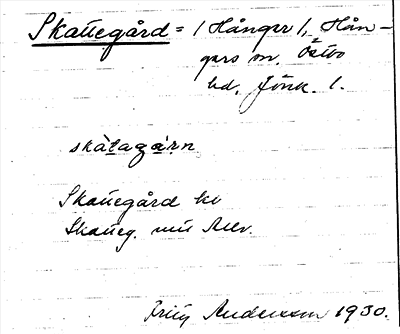 Skattegård = / Hånger /, Hån-
gers sn. Östbo
hd, Jönk. l.
skàtagá̀rn
Skattegård kv
Skatteg. mtl Allv.
Fritz Andersson 1930.